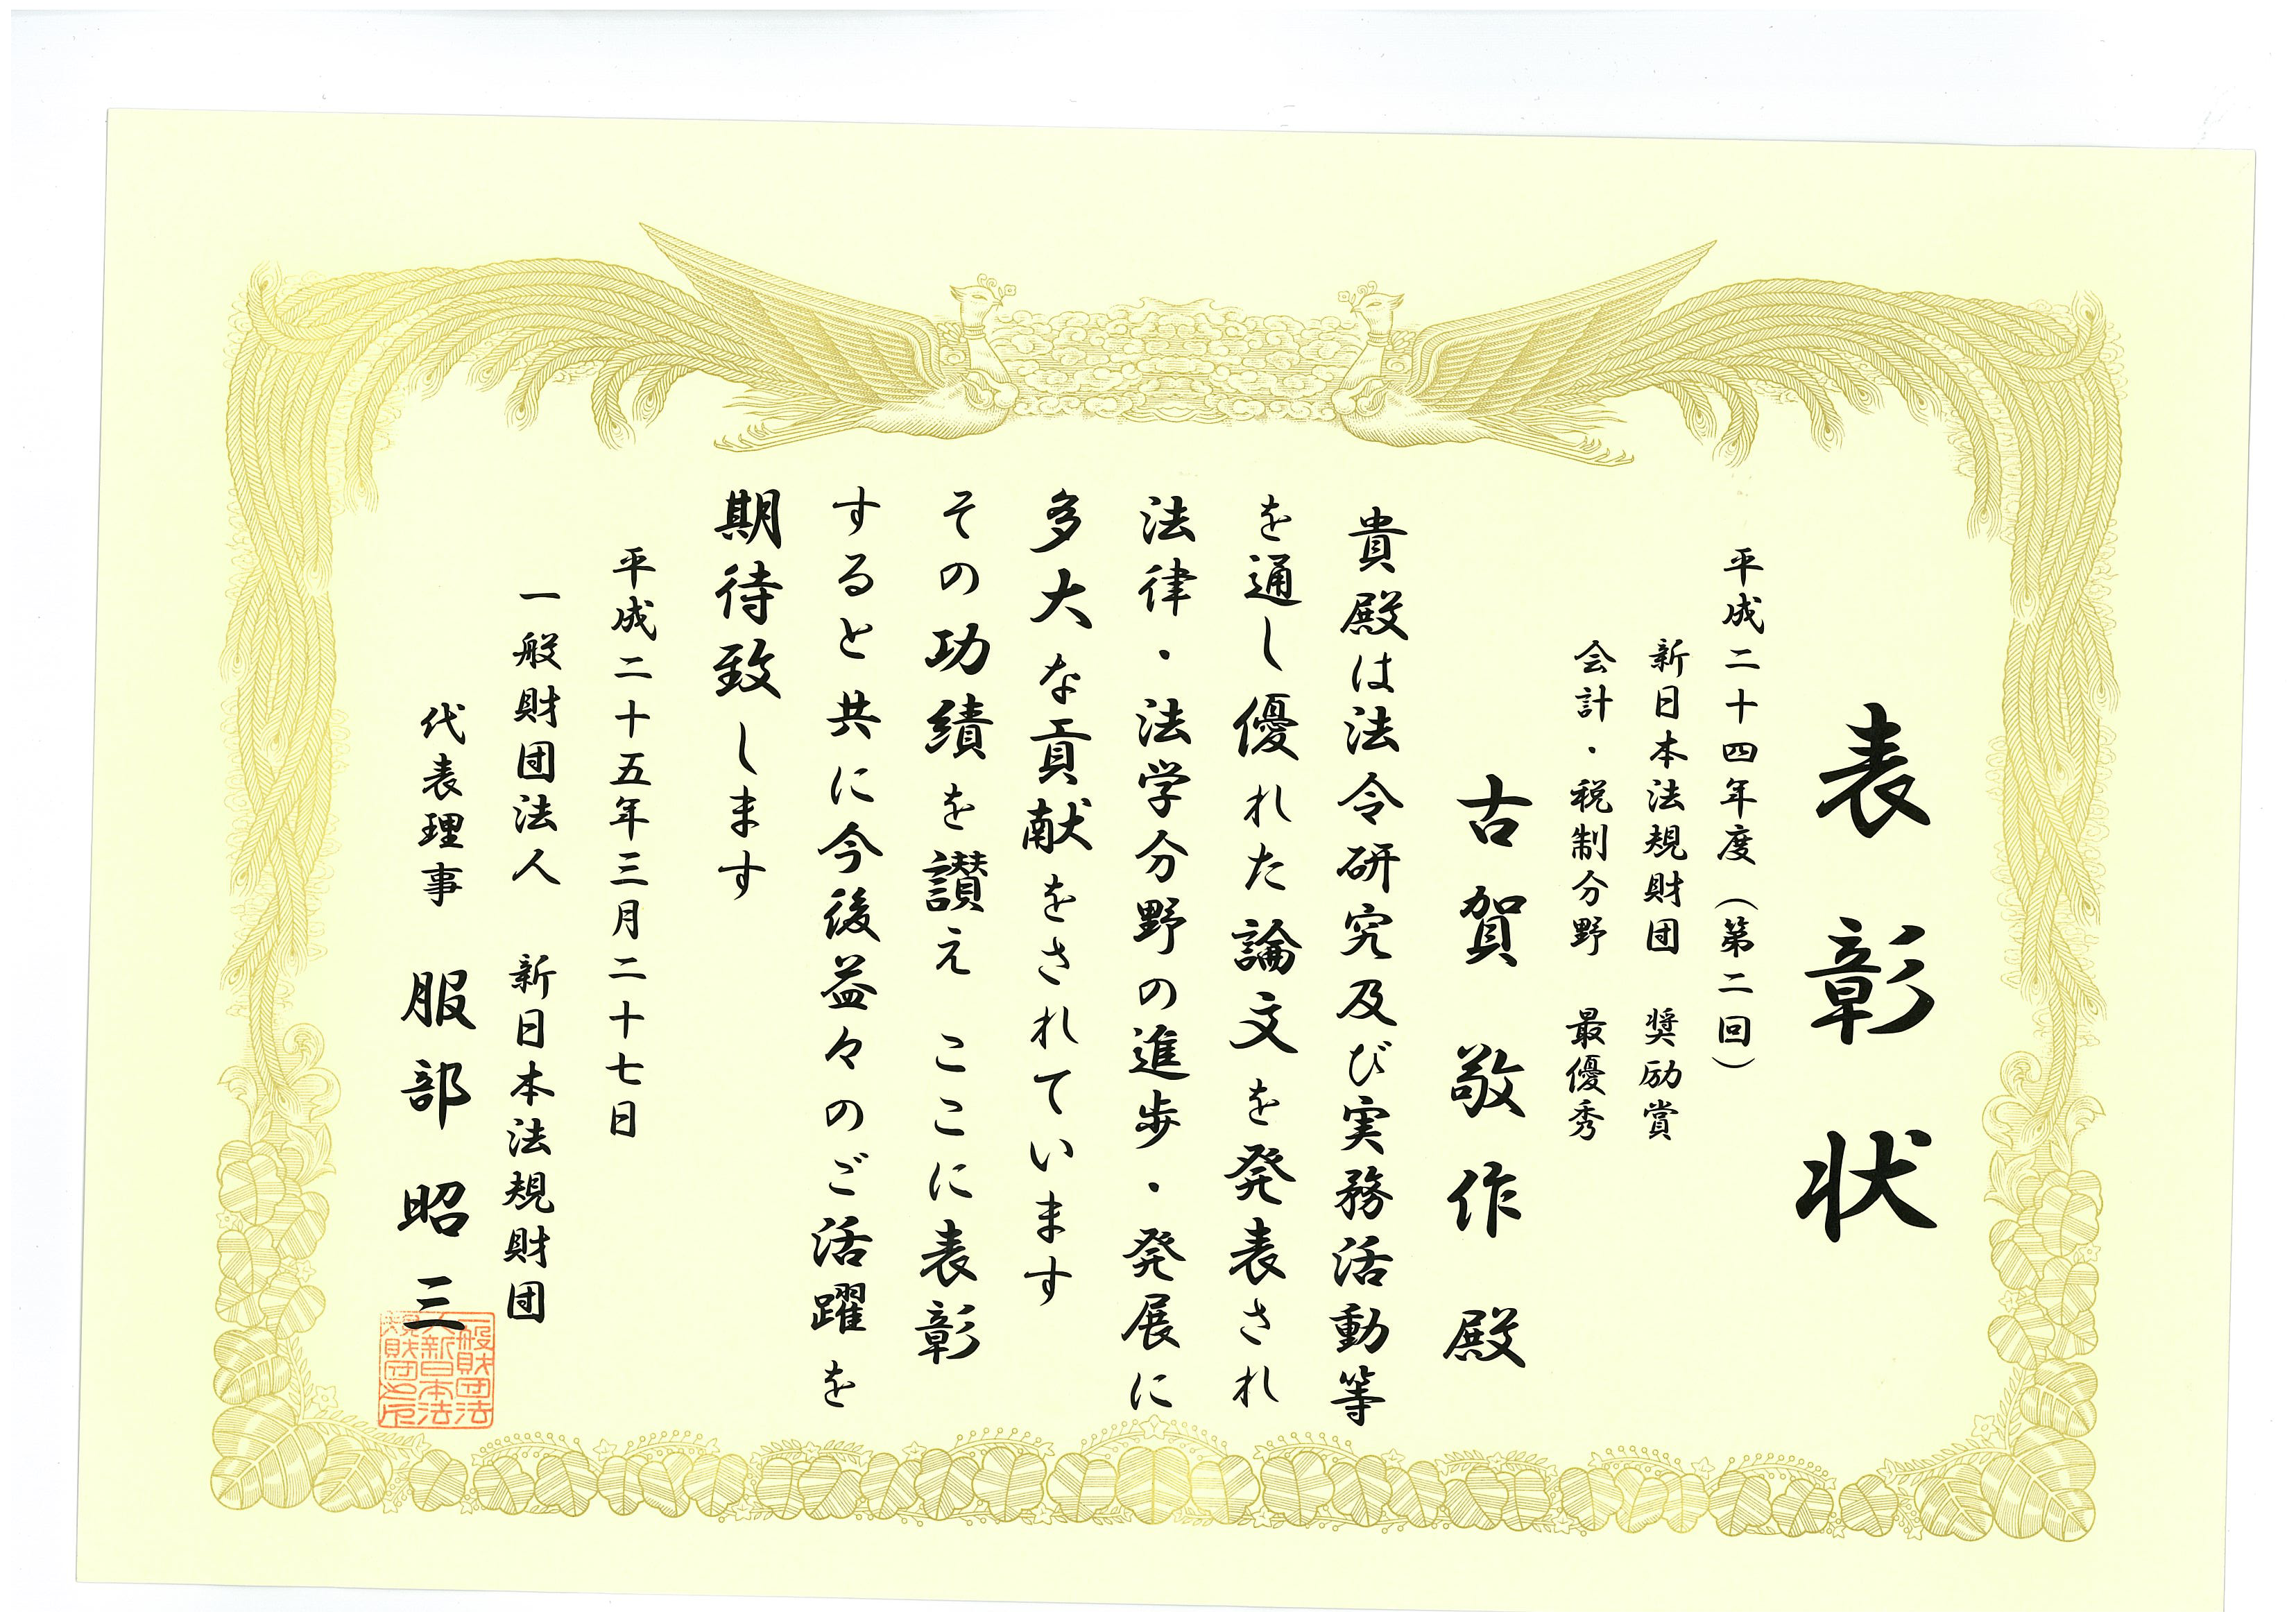 表彰状
平成二十四年度（第二回）
新日本法規財団　奨励賞
会計・税制分野　最優秀
古賀敬作殿
貴殿は法令研究及び実務活動等
を通し優れた論文を発表され
法律・法学分野の進歩・発展に
多大な貢献をされています
その功績を讃え　ここに表彰
すると共に今後益々のご活躍を
期待致します
平成二十五年三月二十七日
一般財団法人　新日本法規財団
代表理事　服部昭三
一般財団法
人新日本法
規財団之印